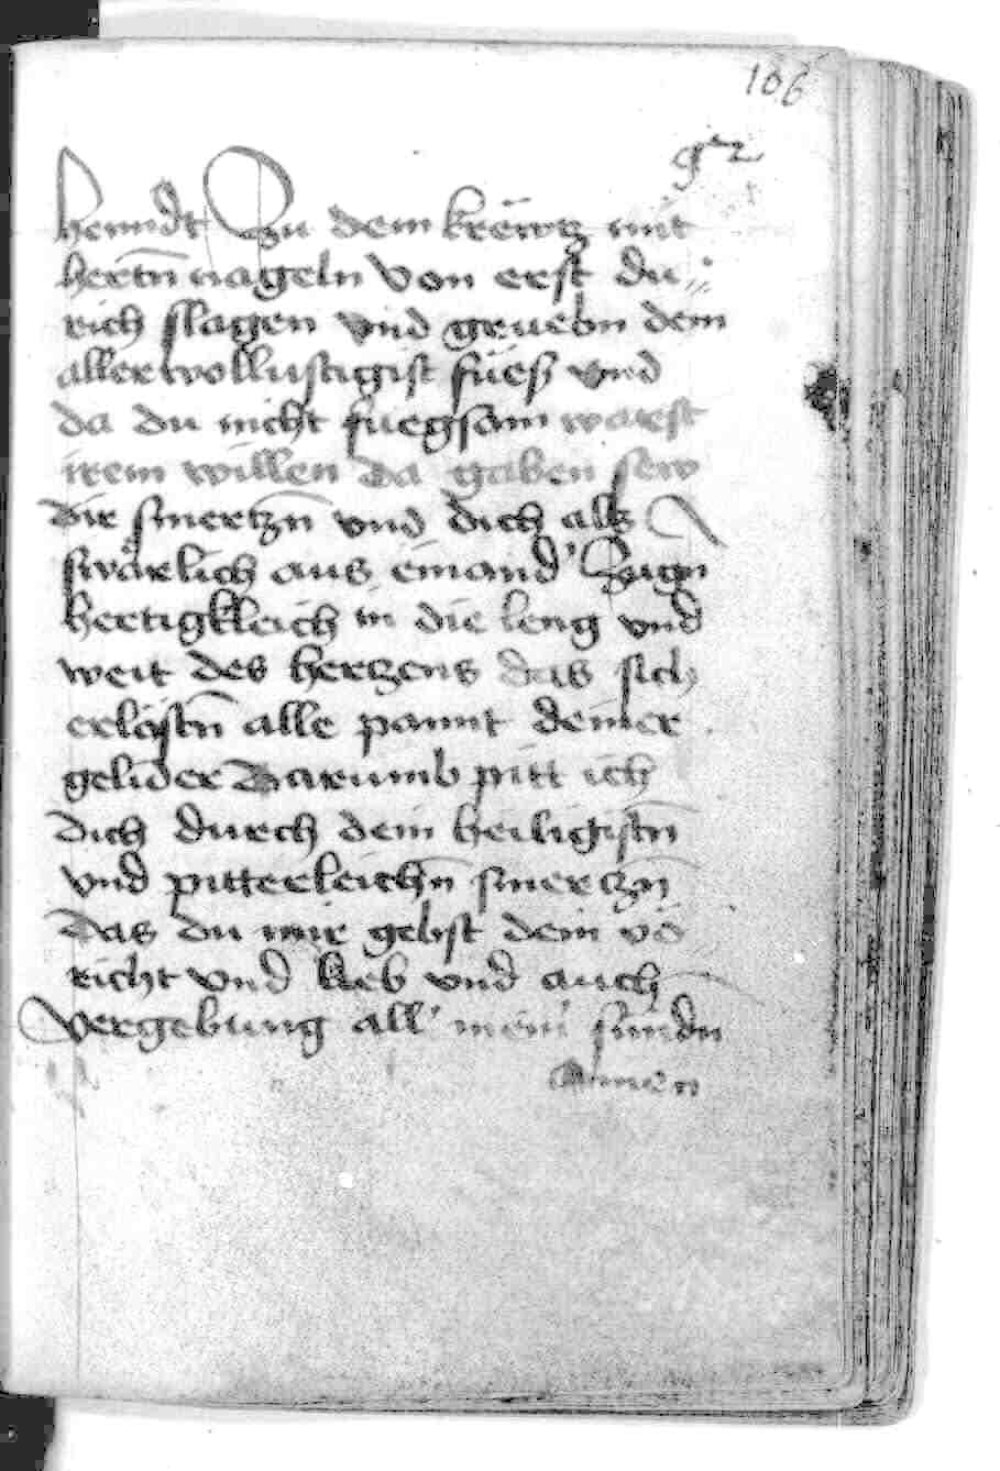 106
henndt Zu dem krewtz mit
hertn̄ nageln von erst du
rich slagen vnd gruebn dein
allerwollustigist füeß vnd
da du nicht fuegsam warest
irem willen da gaben sew
dir smertzn̄ vnd dich als
swärlich aus einand' Zugn
hertigkleich in die leng vnd
weit des hertzens das sich
erlöstn̄ alle pannt deiner
gelider Darumb pitt ich
dich durch dein heiligistn̄
vnd pitterleichn̄ smertzn̄
das du mir gebst dein vō
richt vnd lieb vnd auch
vergebung all' mein' sundn
Amen